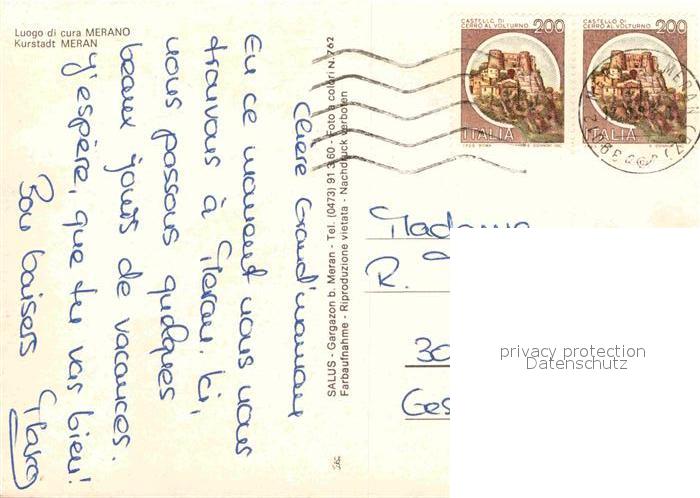 Luogo di cura MERANO
Kurstadt MERAN
Chère Grand'maman
En ce moment nous nous
trouvons à Meran. Ici,
nous passons quelques
beaux jours de vacances.
J'espère, que tu vas bien!
Bon baisers
SALUS - Gargazon b. Meran - Tel. (0473) 91 3 60 - Foto a colori N. 762
Farbaufnahme - Riproduzione vietata - Nachdruck verboten
CASTELLO DI
CERRO AL VOLTURNO 200
ITALIA
CASTELLO DI
CERRO AL VOLTURNO 200
ITALIA
Madame
R.
30
Ges
privacy protection
Datenschutz